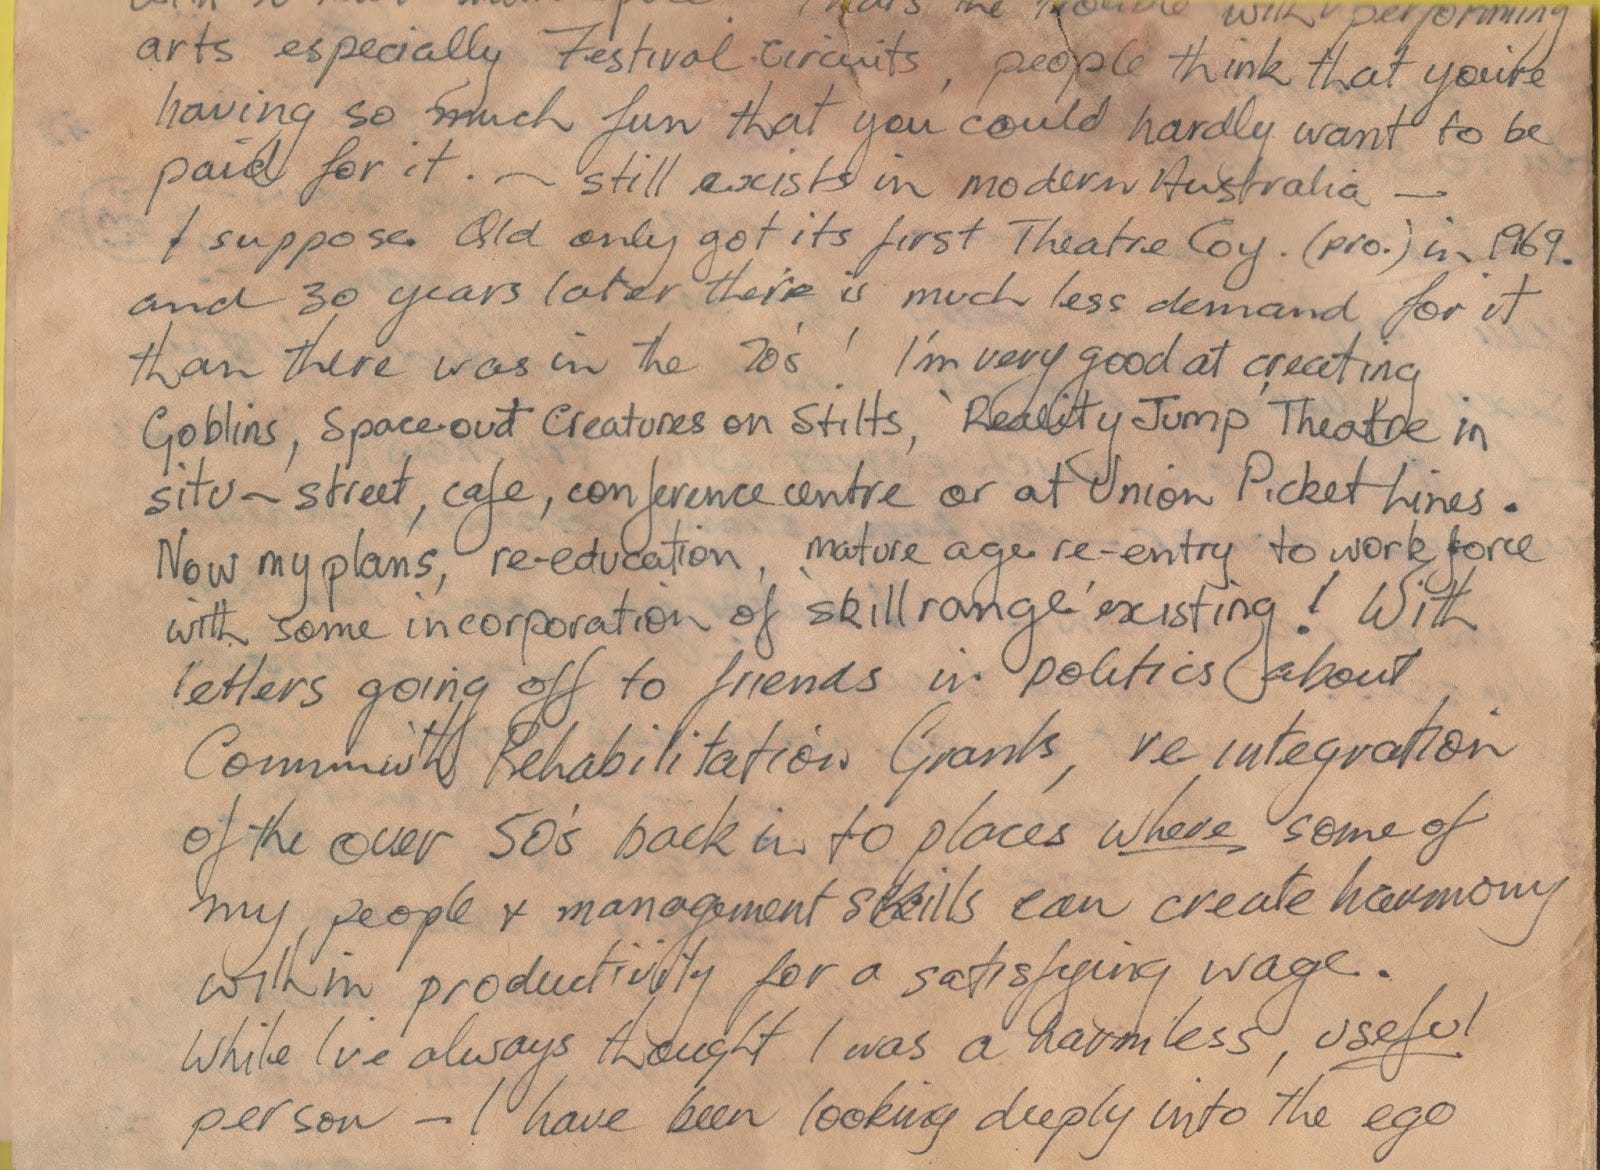 That's the trouble with performing
arts especially Festival Circuits, people think that you're
having so much fun that you could hardly want to be
paid for it. ~ still exists in modern Australia —
I suppose. Qld only got its first Theatre Coy. (pro.) in 1969.
and 30 years later there is much less demand for it
than there was in the 70's! I'm very good at creating
Goblins, Space-out Creatures on Stilts, 'Reality Jump' Theatre in
situ ~ street, cafe, conference centre or at Union Picket Lines.
Now my plans, re-education, mature age re-entry to work force
with some incorporation of 'skill range' existing! With
letters going off to friends in politics about
Commwlth Rehabilitation Grants, re integration
of the over 50's back in to places where some of
my, people & management skills can create harmony
within productivity for a satisfying wage.
While I've always thought I was a harmless, useful
person – I have been looking deeply into the ego